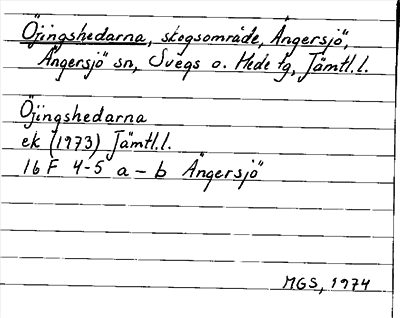 Öjingshedarna, skogsområde, Ängersjö,
Ängersjö sn, Svegs o. Hede tg, Jämtl.l.
Öjingshedarna
ek (1973) Jämtl.l.
16 F 4-5 a - b Ängersjö
MGS, 1974